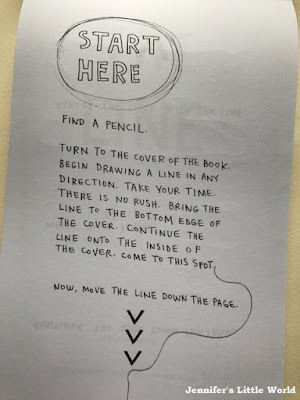 START
HERE
FIND A PENCIL.
TURN TO THE COVER OF THE BOOK.
BEGIN DRAWING A LINE IN ANY
DIRECTION. TAKE YOUR TIME.
THERE IS NO RUSH. BRING THE
LINE TO THE BOTTOM EDGE OF
THE COVER. CONTINUE THE
LINE ONTO THE INSIDE OF
THE COVER. COME TO THIS SPOT,
NOW, MOVE THE LINE DOWN THE PAGE.
Jennifer's Little World